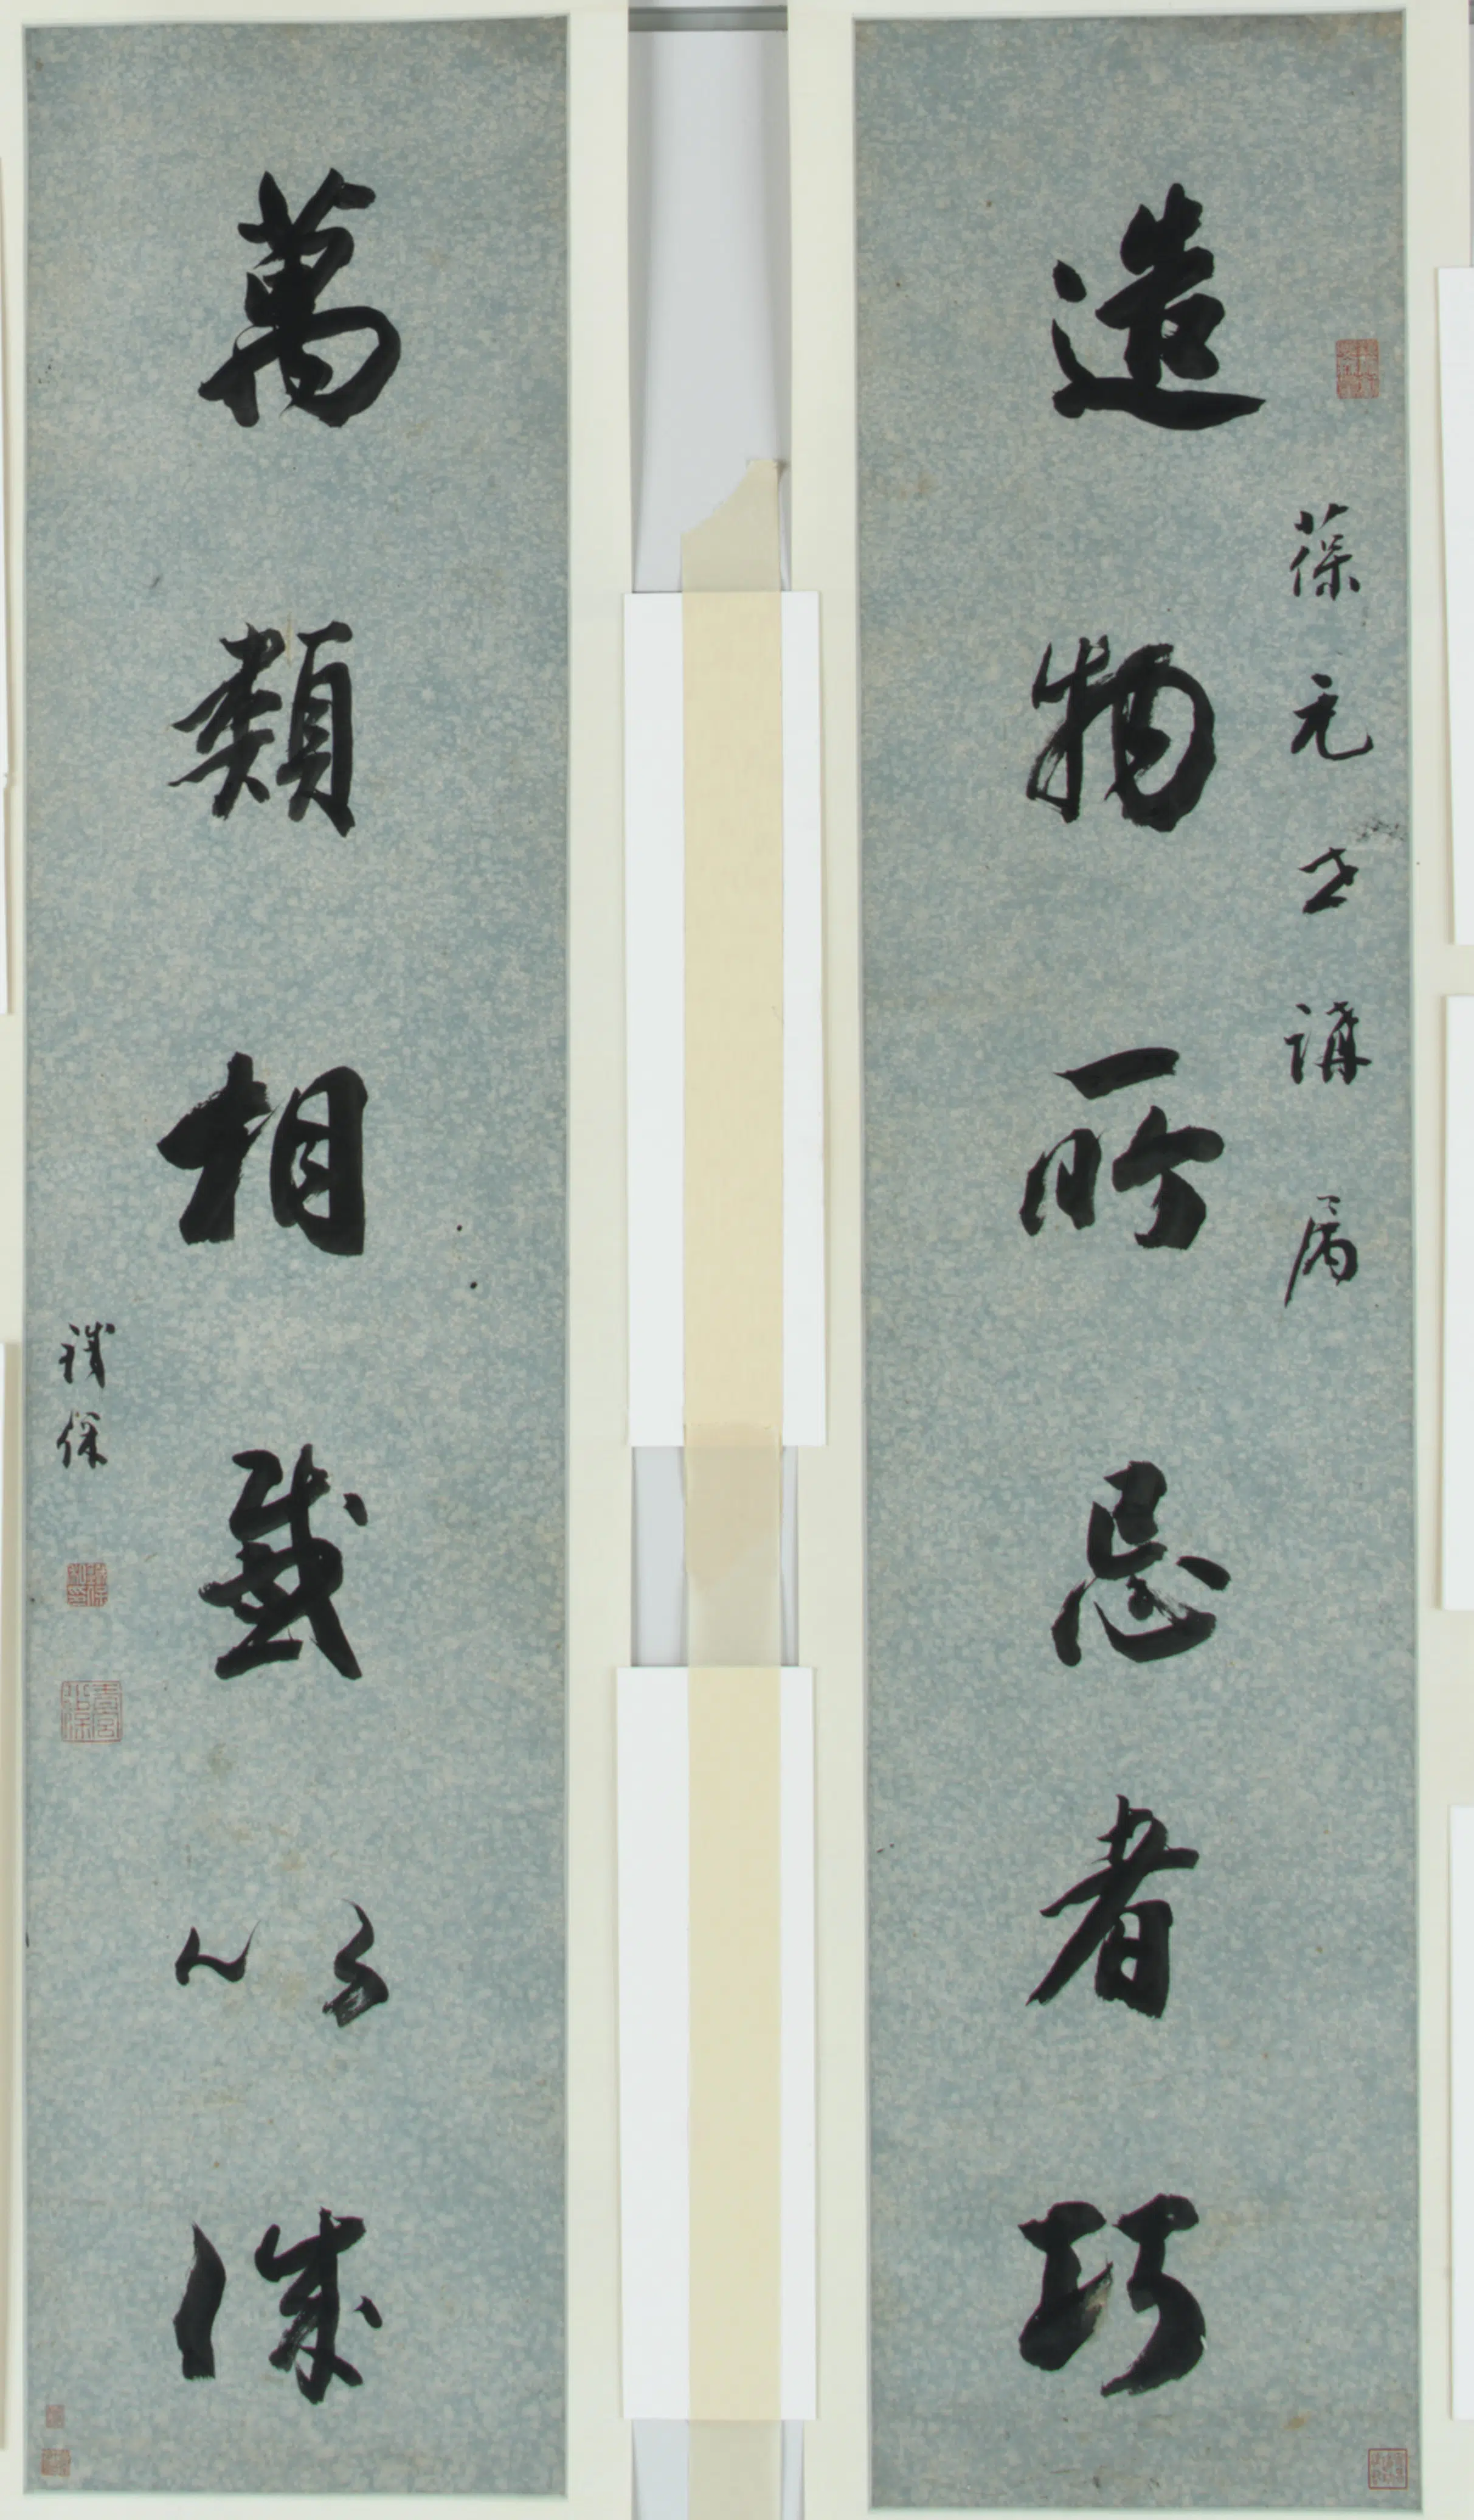 造物所忌者巧
葆元世講屬
萬類相感以誠
鐵保